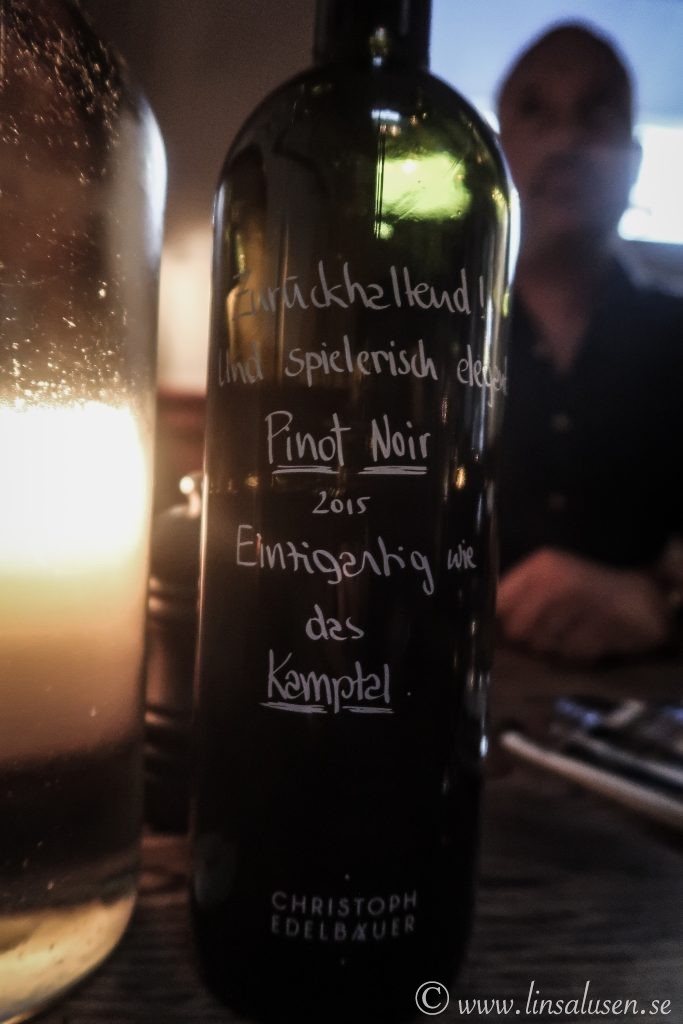 Zurückhaltend!
Und spielerisch elegant
Pinot Noir
2015
Eintigartig wie
das
Kamptal.
CHRISTOPH
EDELBAUER
© www.linsalusen.se